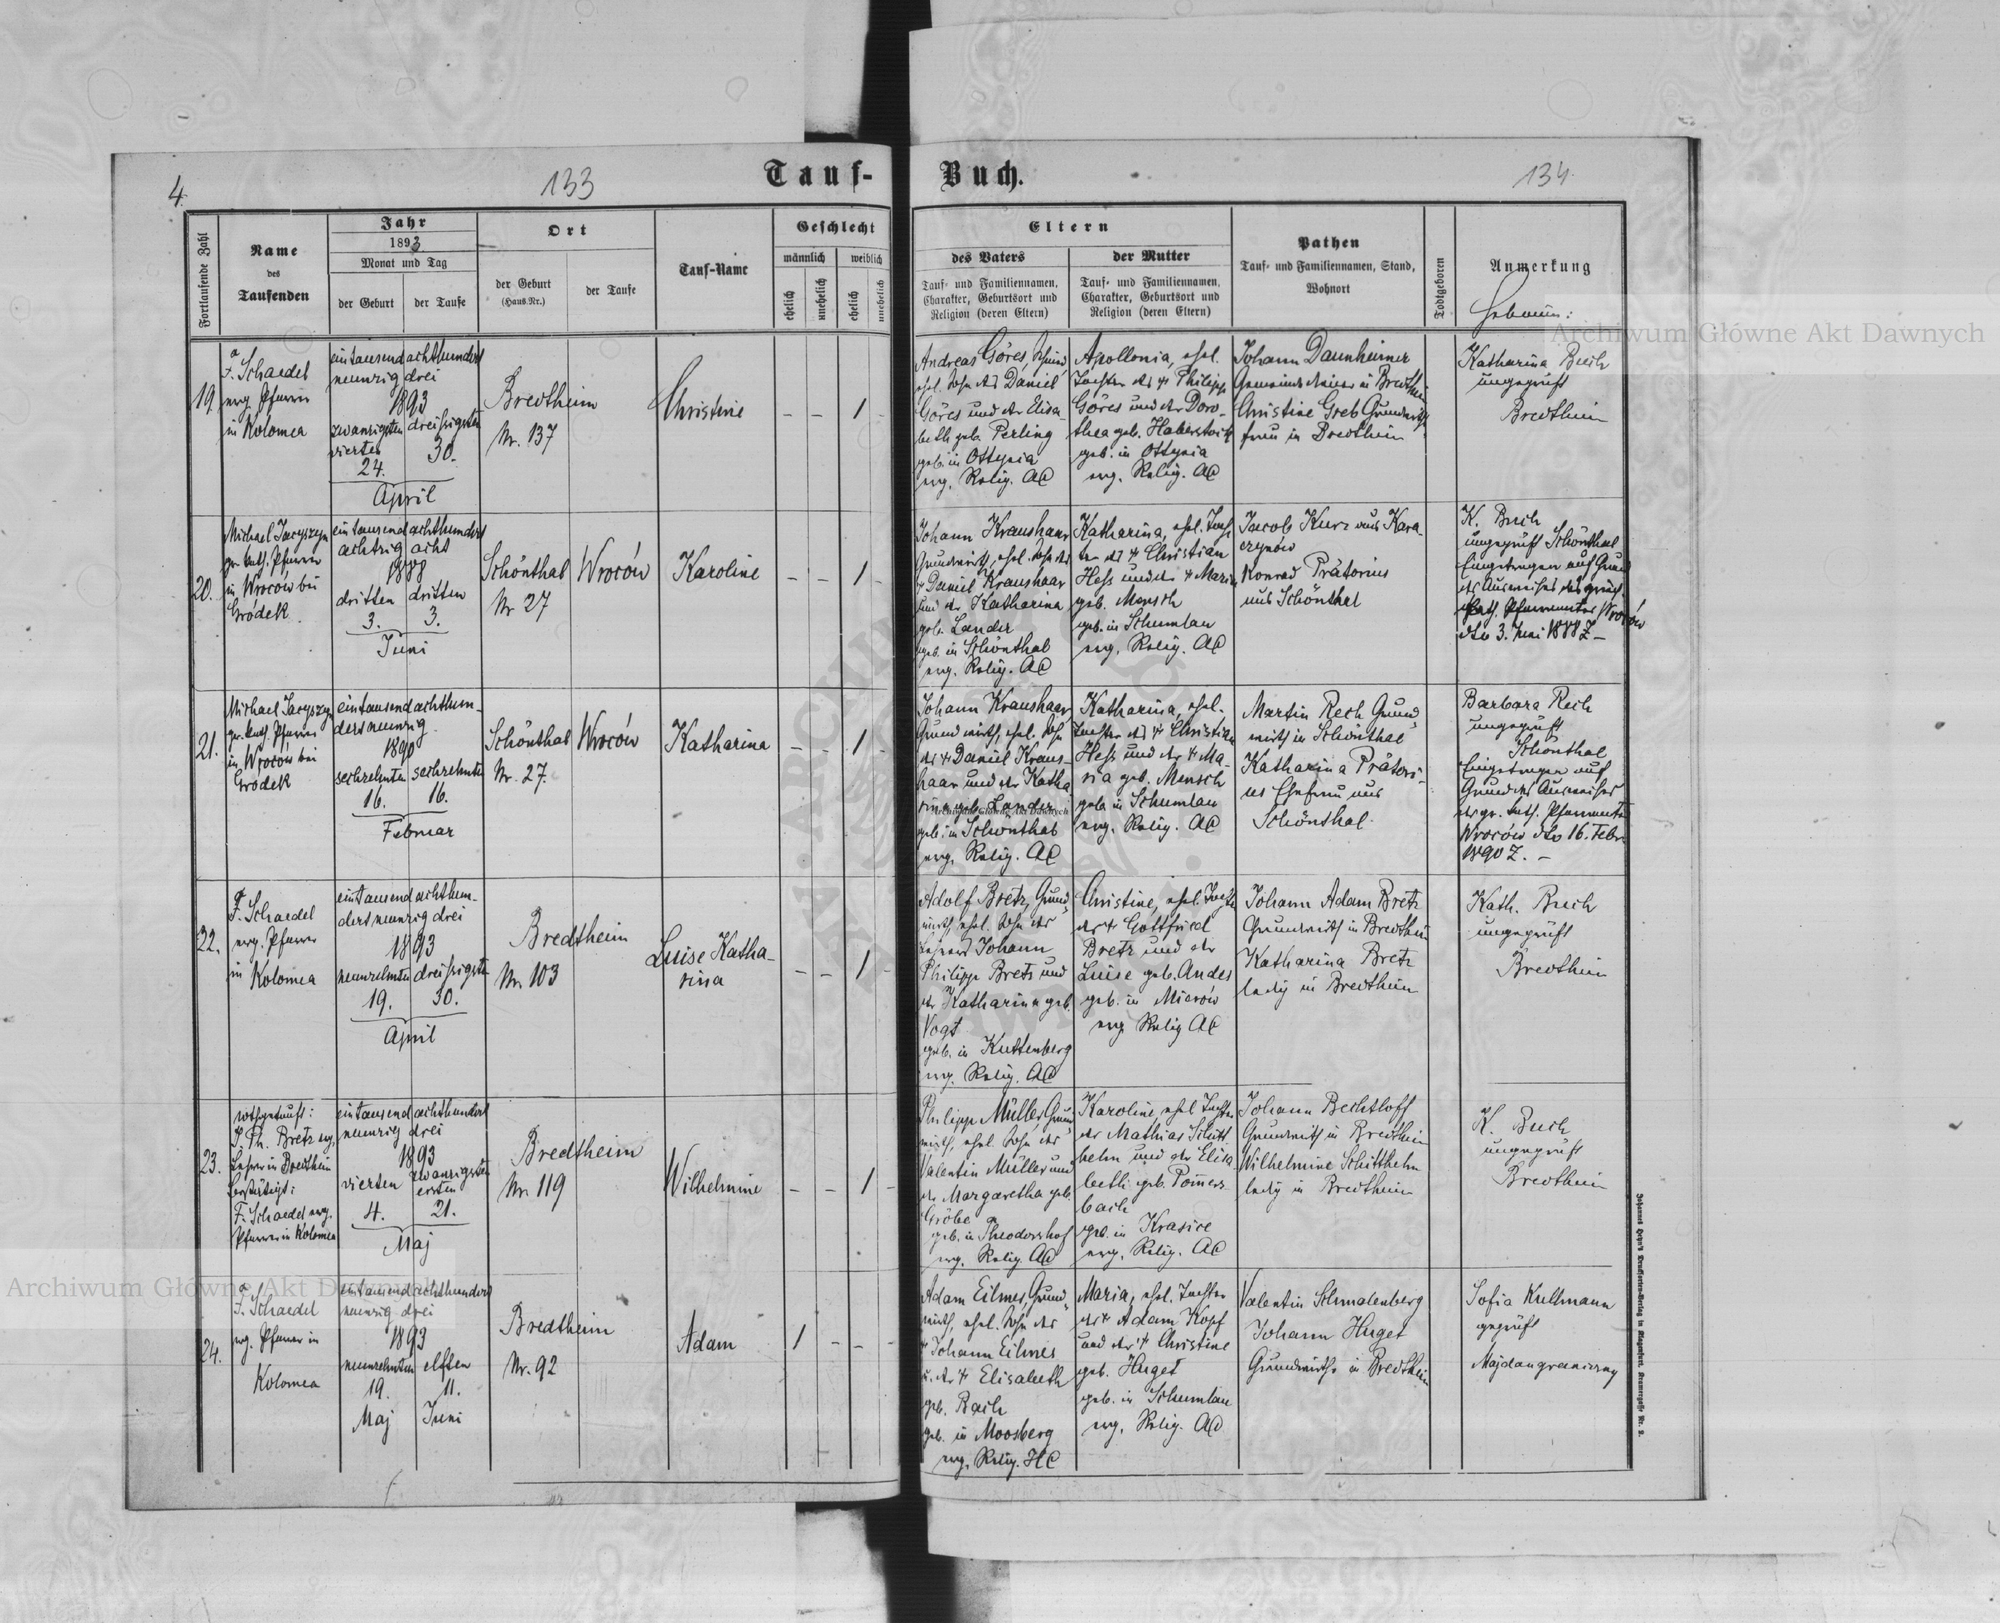 4.
133
Tauf-
Buch.
134.
Fortlaufende Zahl
Name
des
Taufenden
Jahr
1893
Monat und Tag
der Geburt
der Taufe
Ort
der Geburt
(Haus-Nr.)
der Taufe
Tauf-Name
Geschlecht
männlich
weiblich
ehelich
unehelich
ehelich
unehelich
Eltern
des Vaters
Tauf- und Familiennamen,
Charakter, Geburtsort und
Religion (deren Eltern)
der Mutter
Tauf- und Familiennamen,
Charakter, Geburtsort und
Religion (deren Eltern)
Pathen
Tauf- und Familiennamen, Stand,
Wohnort
Todtgeboren
Anmerkung
19.
F. Schaedel
evg. Pfarrer
in Kolomea
eintausend achthundert
neunzig drei
1893
zwanzigsten dreißigsten
vierten
24. 30.
April
Bredtheim
Nr. 137
Christine
– – 1 –
Andreas Göres,
ehel. Sohn des Daniel
Göres und der Elisa-
beth geb. Perling
geb. in Ottynia
evg. Relig. AC
Apollonia, ehel.
Tochter des † Philipp
Göres und der Doro-
thea geb.
geb. in Ottynia
evg. Relig. AC
Johann Dannheimer
Gemeindediener in Bredtheim
Christine Greb Grundwirths-
frau in Bredtheim
Katharina Buch
ungeprüft
Bredtheim
20.
Michael Jacyszyn
gr. kath. Pfarrer
in Wroców bei
Gródek
eintausend achthundert
achtzig acht
1888
dritten dritten
3. 3.
Juni
Schönthal
Nr 27
Wroców
Karoline
– – 1 –
Johann Kraushaar
Grundwirth, ehel. Sohn des
† Daniel Kraushaar
und der Katharina
geb. Lander
geb. in Schönthal
evg. Relig. AC
Katharina, ehel. Toch-
ter des † Christian
Hess und der † Maria
geb. Mensch
geb. in Schumlau
evg. Relig. AC
Jacob Kurz aus Kara-
czynów
Konrad Prätorius
aus Schönthal
K. Buch
ungeprüft Schönthal
Eingetragen auf Grund
des Ausweises des griech.
kath. Pfarramtes Wroców
dto 3. Juni 1888 Z –
21.
Michael Jacyszyn
gr. kath. Pfarrer
in Wrocow bei
Gródek
eintausend achthun-
dert neunzig
1890
sechzehnten sechzehnten
16. 16.
Februar
Schönthal
Nr. 27.
Wroców
Katharina
– – 1 –
Johann Kraushaar,
Grundwirth, ehel. Sohn
des † Daniel Kraus-
haar und der Katha
rina geb. Lander
geb. in Schönthal
evg. Relig. AC
Katharina, ehel.
Tochter des † Christian
Hess und der † Ma-
ria geb. Mensch
geb. in Schumlau
evg. Relig. AC
Martin Rech Grund-
wirth in Schönthal
Katharina Prätori-
us Ehefrau aus
Schönthal
Barbara Rech
ungeprüft
Schönthal
Eingetragen auf
Grund des Ausweises
des gr. kath. Pfarramtes
Wroców dto 16. Febr.
1890 Z. –
22.
F. Schaedel
evg. Pfarrer
in Kolomea
eintausend achthun-
dert neunzig drei
1893
neunzehnten dreißigsten
19. 30.
April
Bredtheim
Nr. 103
Luise Katha-
rina
– – 1 –
Adolf Bretz, Grund-
wirth, ehel. Sohn des
Lehrers Johann
Philipp Bretz und
der Katharina geb.
Vogt
geb. in Kuttenberg
evg. Relig. AC
Christine, ehel. Tochter
des † Gottfried
Bretz und der
Luise geb. Andes
geb. in Mierów
evg. Relig AC
Johann Adam Bretz
Grundwirth in Bredtheim
Katharina Bretz
ledig in Bredtheim
Kath. Buch
ungeprüft
Bredtheim
23.
nothgetauft:
J. Ph. Bretz evg.
Lehrer in Bredtheim
bestätigt:
F. Schaedel evg.
Pfarrer in Kolomea
eintausend achthundert
neunzig drei
1893
vierten zwanzigsten
ersten
4. 21.
Maj
Bredtheim
Nr. 119
Wilhelmine
– – 1 –
Philipp Müller, Grund-
wirth, ehel. Sohn des
Valentin Müller und
der Margaretha geb.
Gröbe
geb. in Theodorshof
evg. Relig. AC
Karoline, ehel Tochter
des Mathias Schitt-
helm und der Elisa-
beth geb. Pomers-
bach
geb. in Krasice
evg. Relig. AC
Johann Bechtloff
Grundwirth in Bredtheim
Wilhelmine Schitthelm
ledig in Bredtheim
K. Buch
ungeprüft
Bredtheim
24.
F. Schaedel
evg. Pfarrer in
Kolomea
eintausend achthundert
neunzig drei
1893
neunzehnten elften
19. 11.
Maj Juni
Bredtheim
Nr. 92
Adam
1 – – –
Adam Eilmes, Grund-
wirth, ehel. Sohn des
† Johann Eilmes
u. der † Elisabeth
geb. Bach
geb. in Moosberg
evg. Relig. HC
Maria, ehel. Tochter
des † Adam Kopf
und der † Christine
geb. Huget
geb. in Schumlau
evg. Relig. AC
Valentin Schmalenberg
Johann Huget
Grundwirthe in Bredtheim
Sofia Kullmann
geprüft
Majdangraniczny
Archiwum Główne Akt Dawnych
Archiwum Główne Akt Dawnych
Archiwum Główne Akt Dawnych